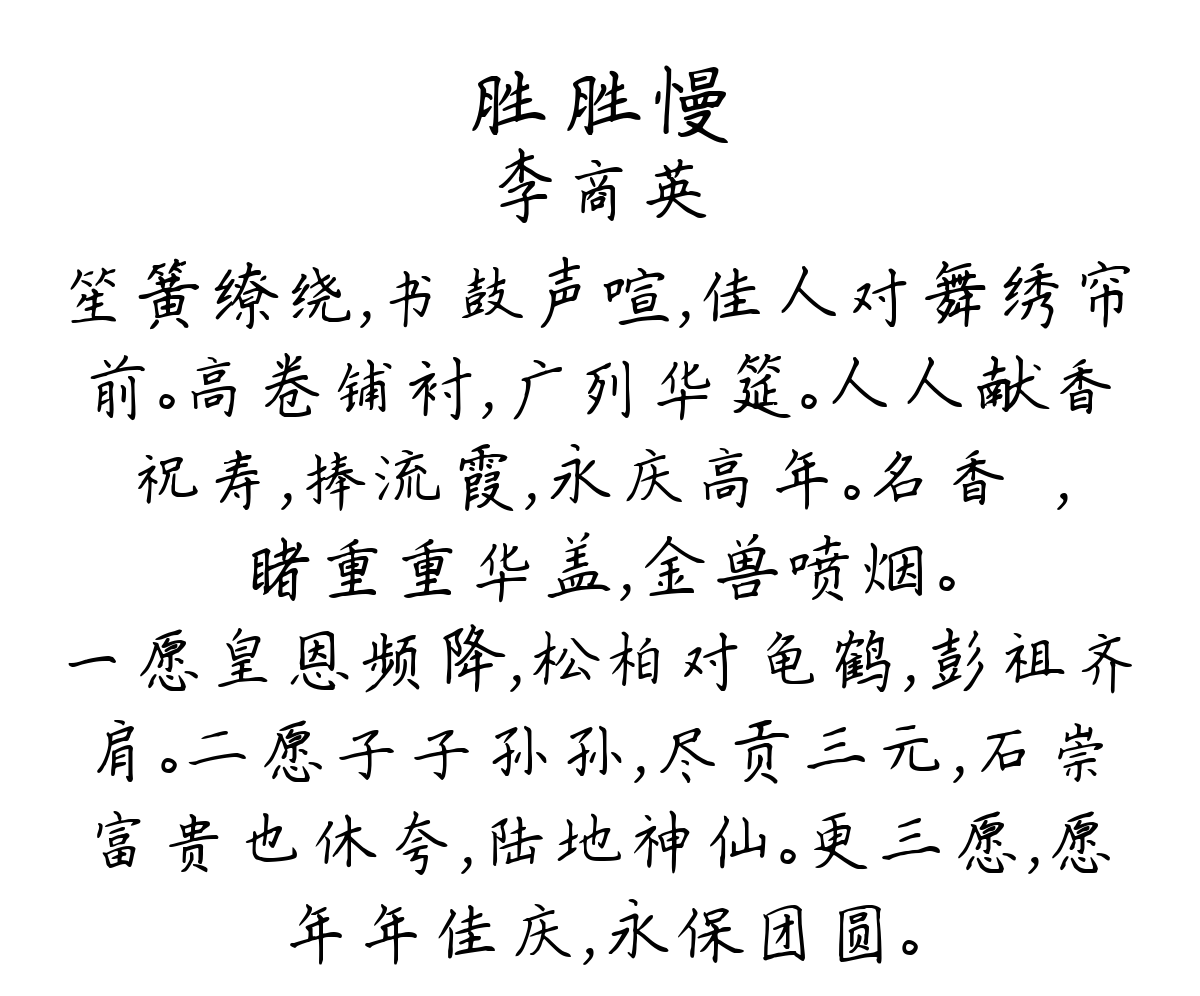 胜胜慢
李商英
笙簧缭绕,书鼓声喧,佳人对舞绣帘
前。高卷铺衬,广列华筵。人人献香
祝寿,捧流霞,永庆高年。名香 ,
睹重重华盖,金兽喷烟。
一愿皇恩频降,松柏对龟鹤,彭祖齐
肩。二愿子子孙孙,尽贡三元,石崇
富贵也休夸,陆地神仙。更三愿,愿
年年佳庆,永保团圆。